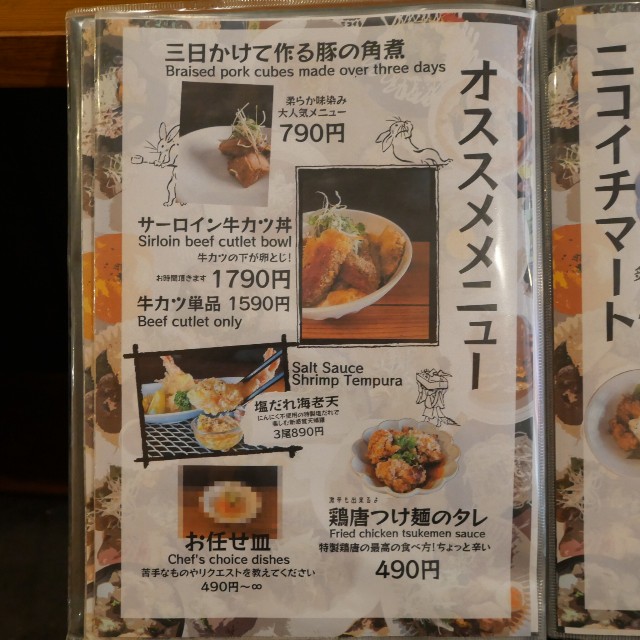 三日かけて作る豚の角煮
Braised pork cubes made over three days
柔らか味染み
大人気メニュー
790円
オススメメニュー
サーロイン牛カツ丼
Sirloin beef cutlet bowl
牛カツの下が卵とじ!
お時間頂きます 1790円
牛カツ単品 1590円
Beef cutlet only
Salt Sauce
Shrimp Tempura
塩だれ海老天
にんにく不使用の特製塩だれで
楽しむ新感覚天婦羅
3尾890円
お任せ皿
Chef's choice dishes
苦手なものやリクエストを教えてください
490円~∞
激辛も出来るよ
鶏唐つけ麺のタレ
Fried chicken tsukemen sauce
特製鶏唐の最高の食べ方!ちょっと辛い
490円
ニコイチマート